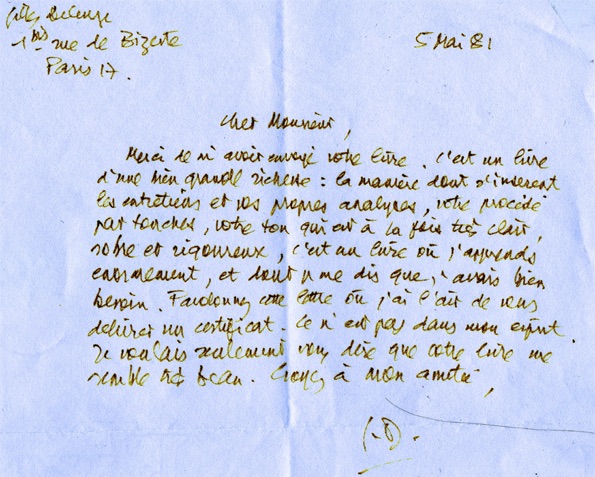 Gilles Deleuze
1bis rue de Bizerte
Paris 17.
5 Mai 81
Cher Monsieur,
Merci de m'avoir envoyé votre livre. C'est un livre
d'une très grande richesse : la manière dont s'insèrent
les entretiens et vos propres analyses, votre procédé
par touches, votre ton qui est à la fois très clair,
sobre et rigoureux, c'est un livre où j'apprends
énormément, et dont je me dis que j'avais bien
besoin. Pardonnez cette lettre où j'ai l'air de vous
délivrer un certificat. Ce n'est pas dans mon esprit.
Je voulais seulement vous dire que votre livre me
semble très beau. Croyez à mon amitié,
G.D.